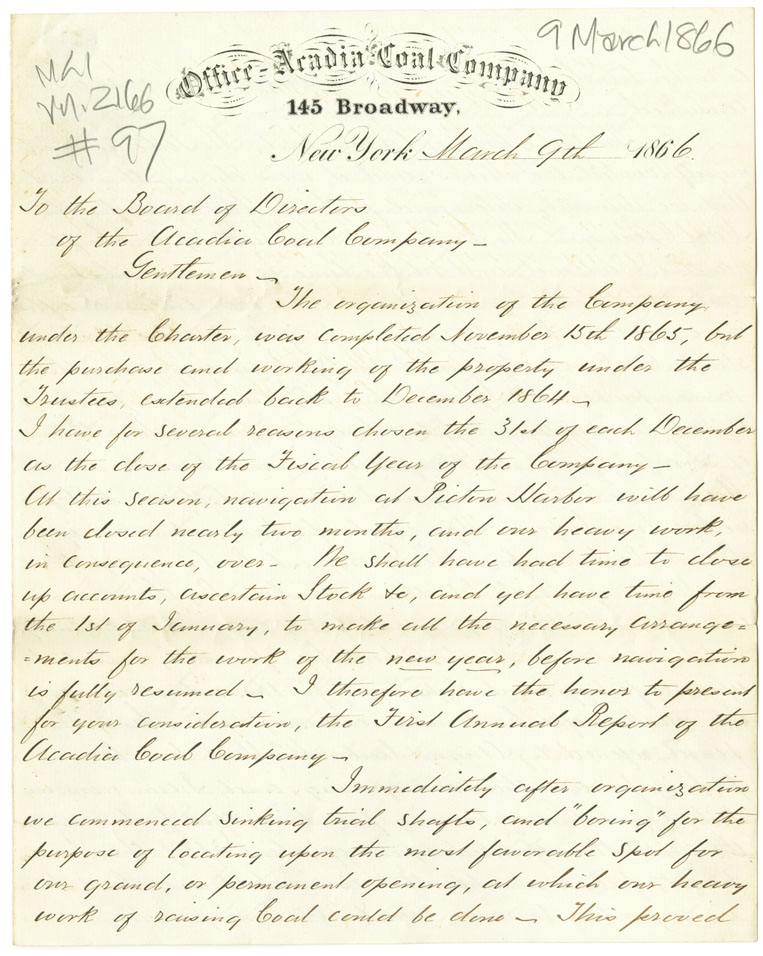 9 March 1866
MG1
Vol. 2166
# 97
Office-Acadia Coal Company
145 Broadway,
New York March 9th 1866.
To the Board of Directors
of the Acadia Coal Company—
Gentlemen—
The organization of the Company,
under the Charter, was completed November 15th 1865, but
the purchase and working of the property under the
Trustees, extended back to December 1864—
I have for several reasons chosen the 31st of each December
as the close of the Fiscal Year of the Company—
At this season, navigation at Pictou Harbor will have
been closed nearly two months, and our heavy work,
in consequence, over- We shall have had time to close
up accounts, ascertain Stock &c, and yet have time from
the 1st of January, to make all the necessary arrange=
=ments for the work of the new year, before navigation
is fully resumed— I therefore have the honor to present
for your consideration, the First Annual Report of the
Acadia Coal Company—
Immediately after organization
we commenced sinking trial shafts, and "boring" for the
purpose of locating upon the most favorable spot for
our grand, or permanent opening, at which our heavy
work of raising Coal could be done— This proved